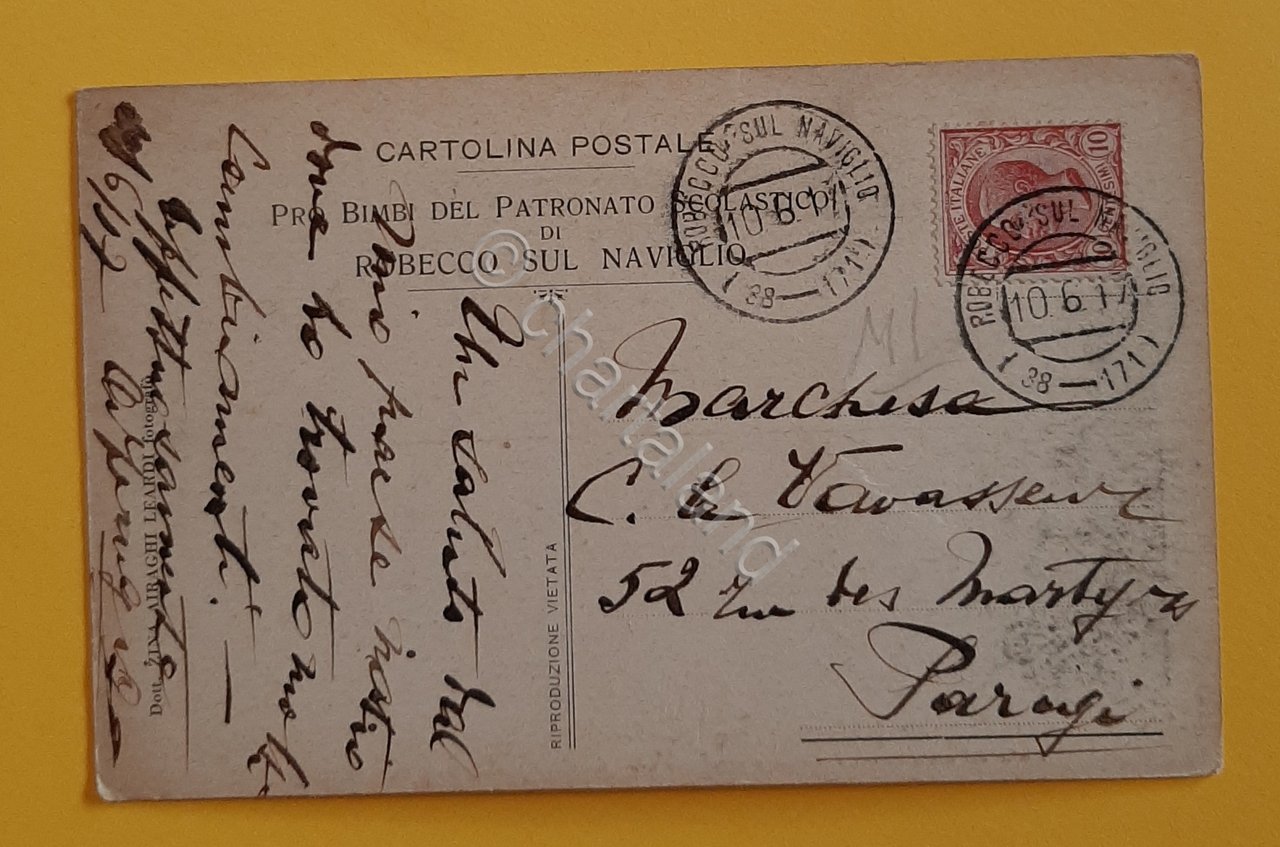 CARTOLINA POSTALE
PRO BIMBI DEL PATRONATO SCOLASTICO
DI
ROBECCO SUL NAVIGLIO
ROBECCO SUL NAVIGLIO
10.6.17
(38-171)
POSTE ITALIANE
10
ROBECCO SUL NAVIGLIO
10.6.17
(38-171)
M1
Marchesa
C. Le Vavasseur
52 rue des Martyrs
Parigi
RIPRODUZIONE VIETATA
Un saluto dal
mio paese
dove ho trovato molti
cambiamenti. —
Affettuosamente
6/17
Dott. AIRAGHI LEARDI fotografa
© chartaland